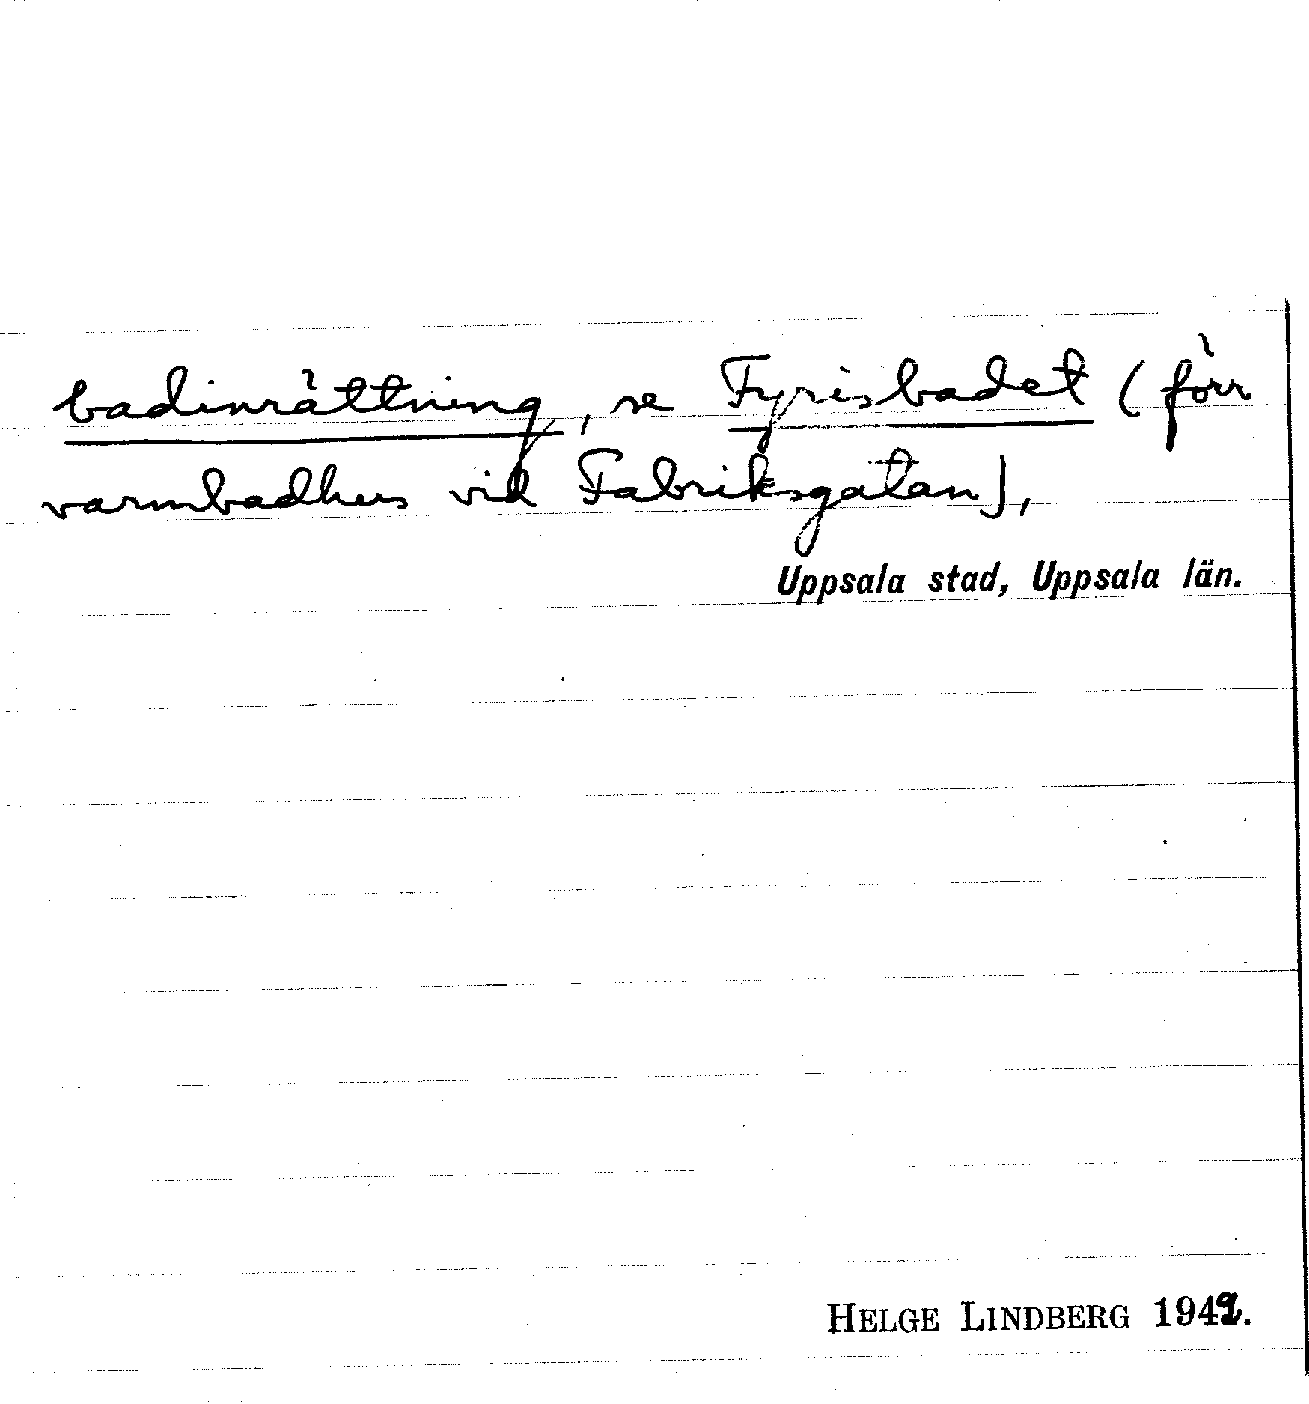 badinrättning, se Fyrisbadet (förr
varmbadhus vid Fabriksgatan),
Uppsala stad, Uppsala län.
HELGE LINDBERG 1942.